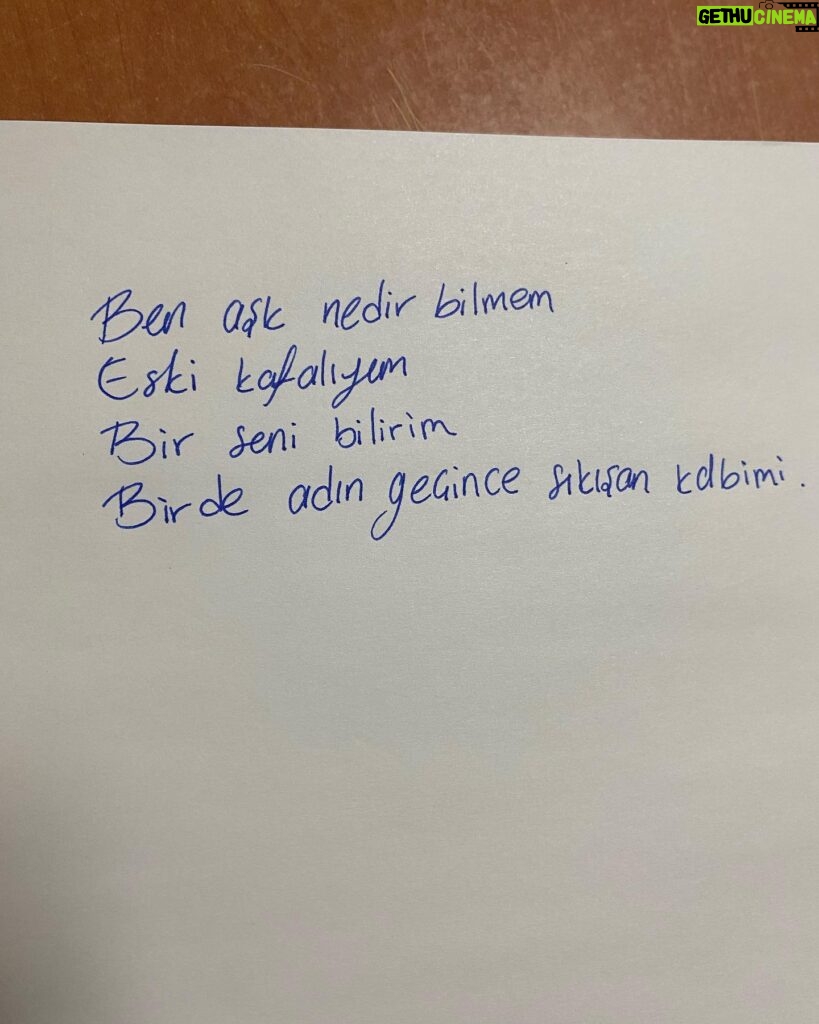 GETHUCINEMA
Ben aşk nedir bilmem
Eski kafalıyım
Bir seni bilirim
Birde adın geçince sıkışan kalbimi.